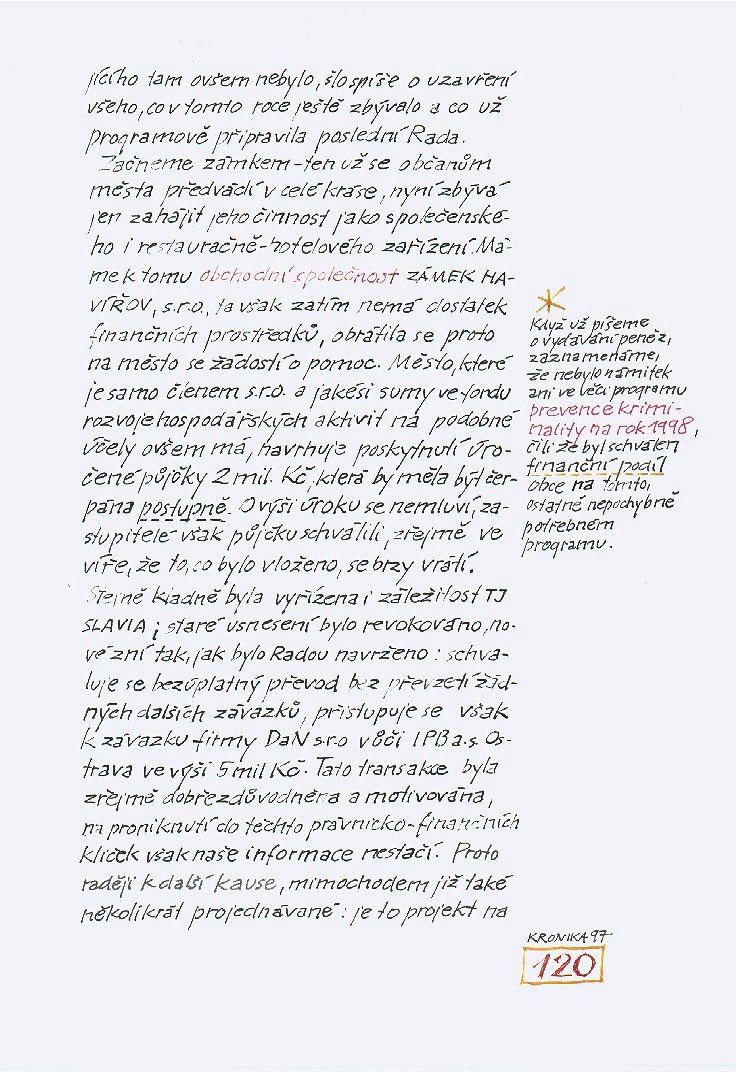 jícího tam ovšem nebylo, šlo spíše o uzavření
všeho, co v tomto roce ještě zbývalo a co už
programově připravila poslední Rada.
Začneme zámkem - ten už se občanům
města předvádí v celé kráse, nyní zbývá
jen zahájit jeho činnost jako společenské-
ho i restauračně-hotelového zařízení. Má-
me k tomu obchodní společnost ZÁMEK HA-
VÍŘOV, s.r.o., ta však zatím nemá dostatek
finančních prostředků, obrátila se proto
na město se žádostí o pomoc. Město, které
je samo členem s.r.o. a jakési sumy ve fondu
rozvoje hospodářských aktivit na podobné
účely ovšem má, navrhuje poskytnutí úro-
čené půjčky 2 mil. Kč, která by měla být čer-
pána postupně. O výši úroku se nemluví, za-
stupitelé však půjčku schválili, zřejmě ve
víře, že to, co bylo vloženo, se brzy vrátí.
Stejně kladně byla vyřízena i záležitost TJ
SLAVIA; staré usnesení bylo revokováno, no-
vé zní tak, jak bylo Radou navrženo: schva-
luje se bezúplatný převod bez převzetí žád-
ných dalších závazků, přistupuje se však
k závazku firmy DaN s.r.o vůči IPB a.s. Os-
trava ve výši 5 mil Kč. Tato transakce byla
zřejmě dobře zdůvodněna a motivována,
na proniknutí do těchto právnicko-finančních
kliček však naše informace nestačí. Proto
raději k další kause, mimochodem již také
několikrát projednávané: je to projekt na
Když už píšeme
o vydávání peněz,
zaznamenáme,
že nebylo námitek
ani ve věci programu
prevence krimi-
nality na rok 1998,
čili že byl schválen
finanční podíl
obce na tomto,
ostatně nepochybně
potřebném
programu.
KRONIKA 97
120